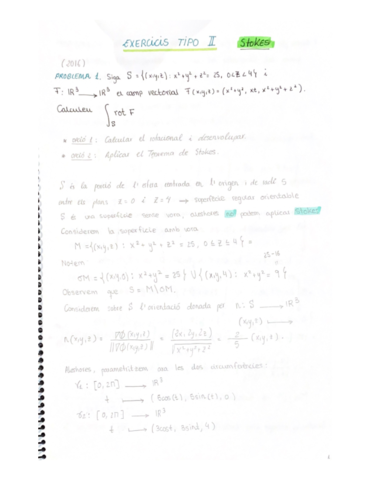 EXERCICIS TIPO II Stokes
(2016)
PROBLEMA 1. Sigui S = {(x,y,z): x²+y²+z² = 25, 0≤z≤4} i
F: ℝ³ → ℝ³ el camp vectorial F(x,y,z) = (x²+y², xz, x²+y²+z²).
Calculeu ∫_S rot F
• opció 1: Calcular el rotacional i desenvolupar.
• opció 2: Aplicar el Teorema de Stokes.
S és la porció de l'esfera centrada en l'origen i de radi 5
entre els plans z = 0 i z = 4 → superfície regular orientable
S és una superfície sense vora, aleshores podem aplicar Stokes
Considerem la superfície amb vora
M = {(x,y,z): x²+y²+z² = 25, 0≤z≤4}
Notem 25-16
∂M = {(x,y,0): x²+y² = 25} ∪ {(x,y,4): x²+y² = 9}
Observem que S = M\∂M.
Considerem sobre S l'orientació donada per n: S → ℝ³
(x,y,z) →
n(x,y,z) = = (2x,2y,2z) =
Aleshores, parametritzem ara les dos circumferències:
γ₁: [0,2π] → ℝ³
t → (5cos(t), 5sin(t), 0)
γ₂: [0,2π] → ℝ³
t → (3cost, 3sint, 4)